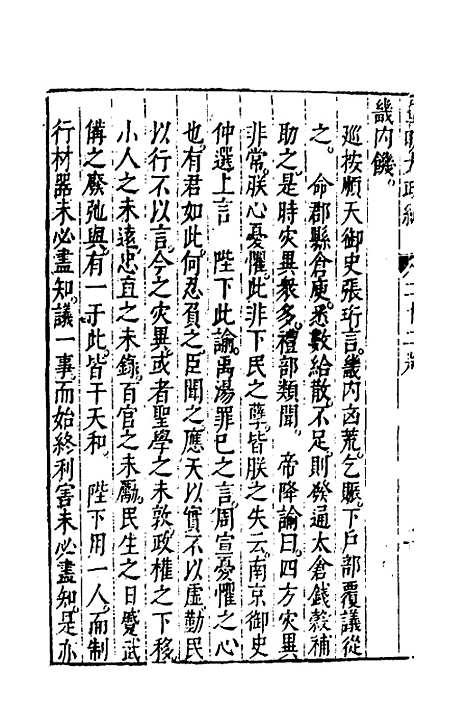 皇明大政紀　卷二十二
畿內饑
巡按順天御史張珩言畿內凶荒乞賑下戶部覆議從
之　命郡縣倉庾悉數給散不足則發通太倉錢穀補
助之是時灾異衆多禮部類聞　帝降諭曰四方灾異
非常朕心憂懼此非下民之孽皆朕之失云南京御史
仲選上言　陛下此諭禹湯罪已之言周宣憂懼之心
也有君如此何忍負之臣聞之應天以實不以虛動民
以行不以言今之灾異或者聖學之未敦政權之下移
小人之未遠忠直之未錄百官之未勵民生之日蹙武
備之廢弛與有一于此皆干天和　陛下用一人而制
行材器未必盡知議一事而始終利害未必盡知是亦